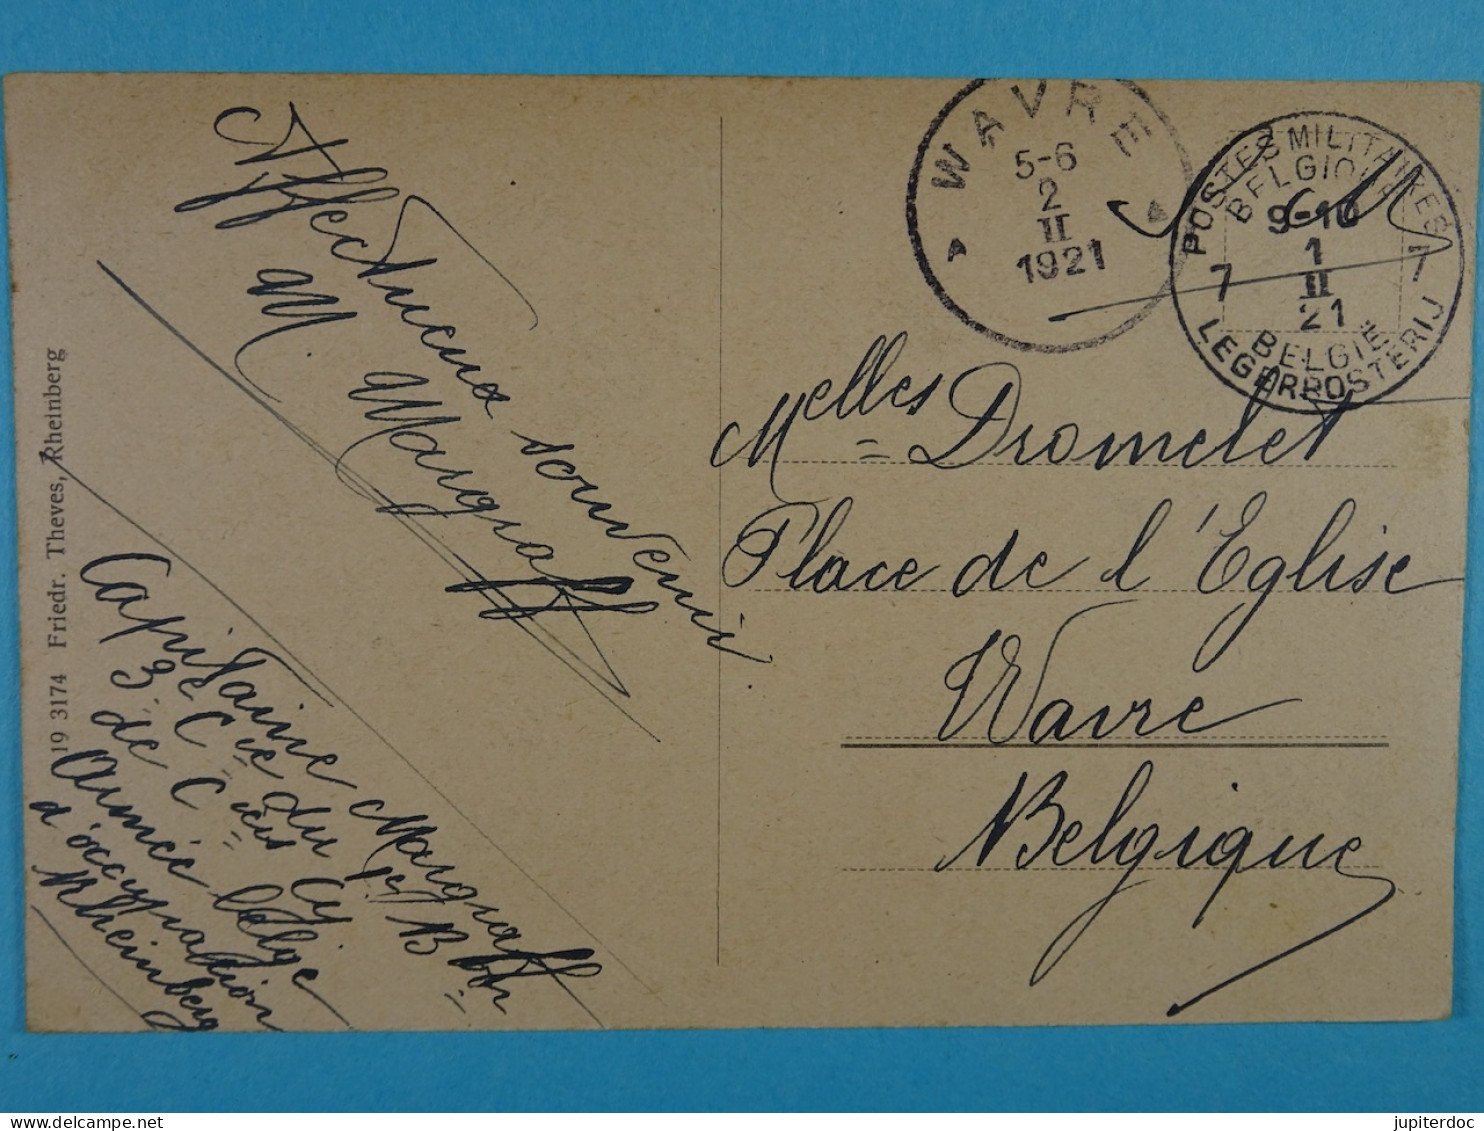 Affectueux souvenir
M. Margraff
Capitaine Margraff
3e Cie du
de Cies Cy
Armée belge
d'occupation
Rheinberg
19 3174 Friedr. Theves, Rheinberg
WAVRE
5-6
2
II
1921
POSTES MILITAIRES
BELGIQUE
9-10
1
7 II 7
21
BELGIË
LEGERPOSTERIJ
S. M.
Melles Dromelet
Place de l'Eglise
Wavre
Belgique
jupiterdoc